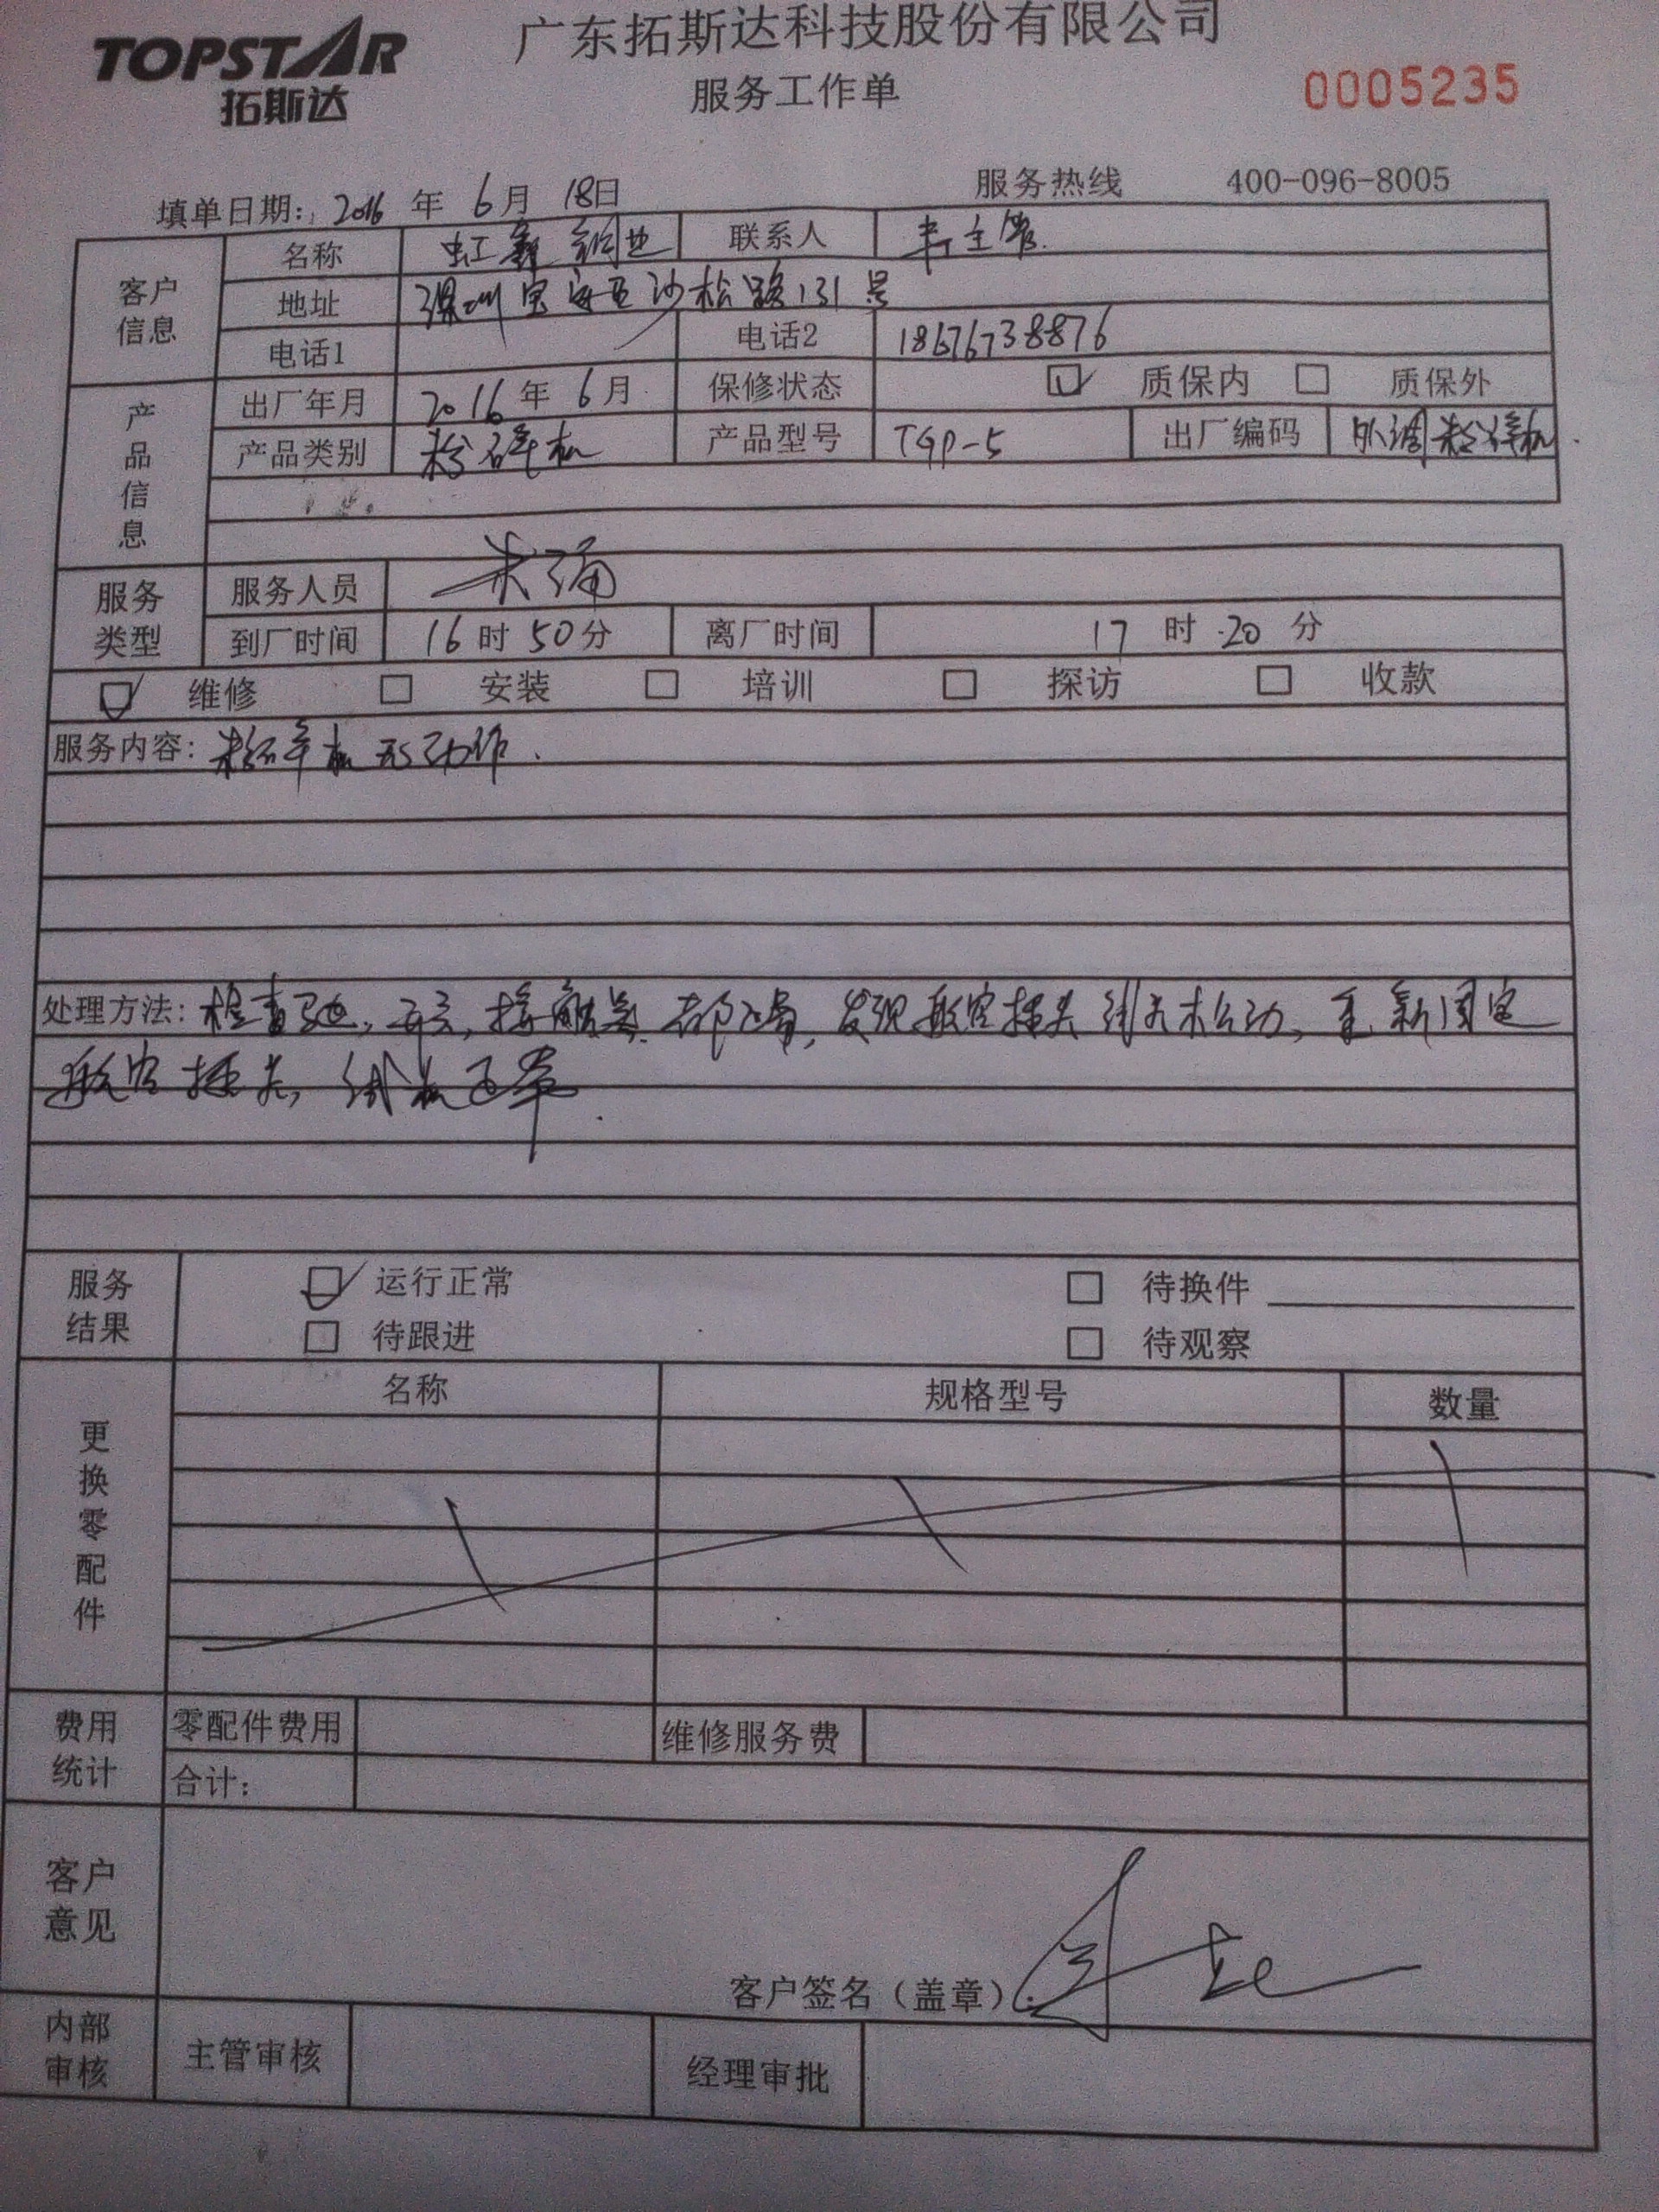 TOPSTAR
拓斯达
广东拓斯达科技股份有限公司
服务工作单
0005235
填单日期: 2016 年 6月 18日
服务热线 400-096-8005
客户信息
名称 虹鑫铜业 联系人 主管
地址 深圳宝安区沙松路131号
电话1 电话2 18676738876
产品信息
出厂年月 2016年 6月 保修状态 质保内 质保外
产品类别 粉碎机 产品型号 TGP-5 出厂编码 外调粉碎机.
服务类型
服务人员 朱
到厂时间 16时50分 离厂时间 17 时 20 分
维修 安装 培训 探访 收款
服务内容: 粉碎机无动作.
处理方法: 检查 开关, 接触器 都正常, 发现航空插头线头松动, 重新固定
航空插头, 试机正常.
服务结果
运行正常 待换件
待跟进 待观察
更换零配件
名称 规格型号 数量
费用统计
零配件费用 维修服务费
合计:
客户意见
客户签名(盖章):
内部审核
主管审核 经理审批